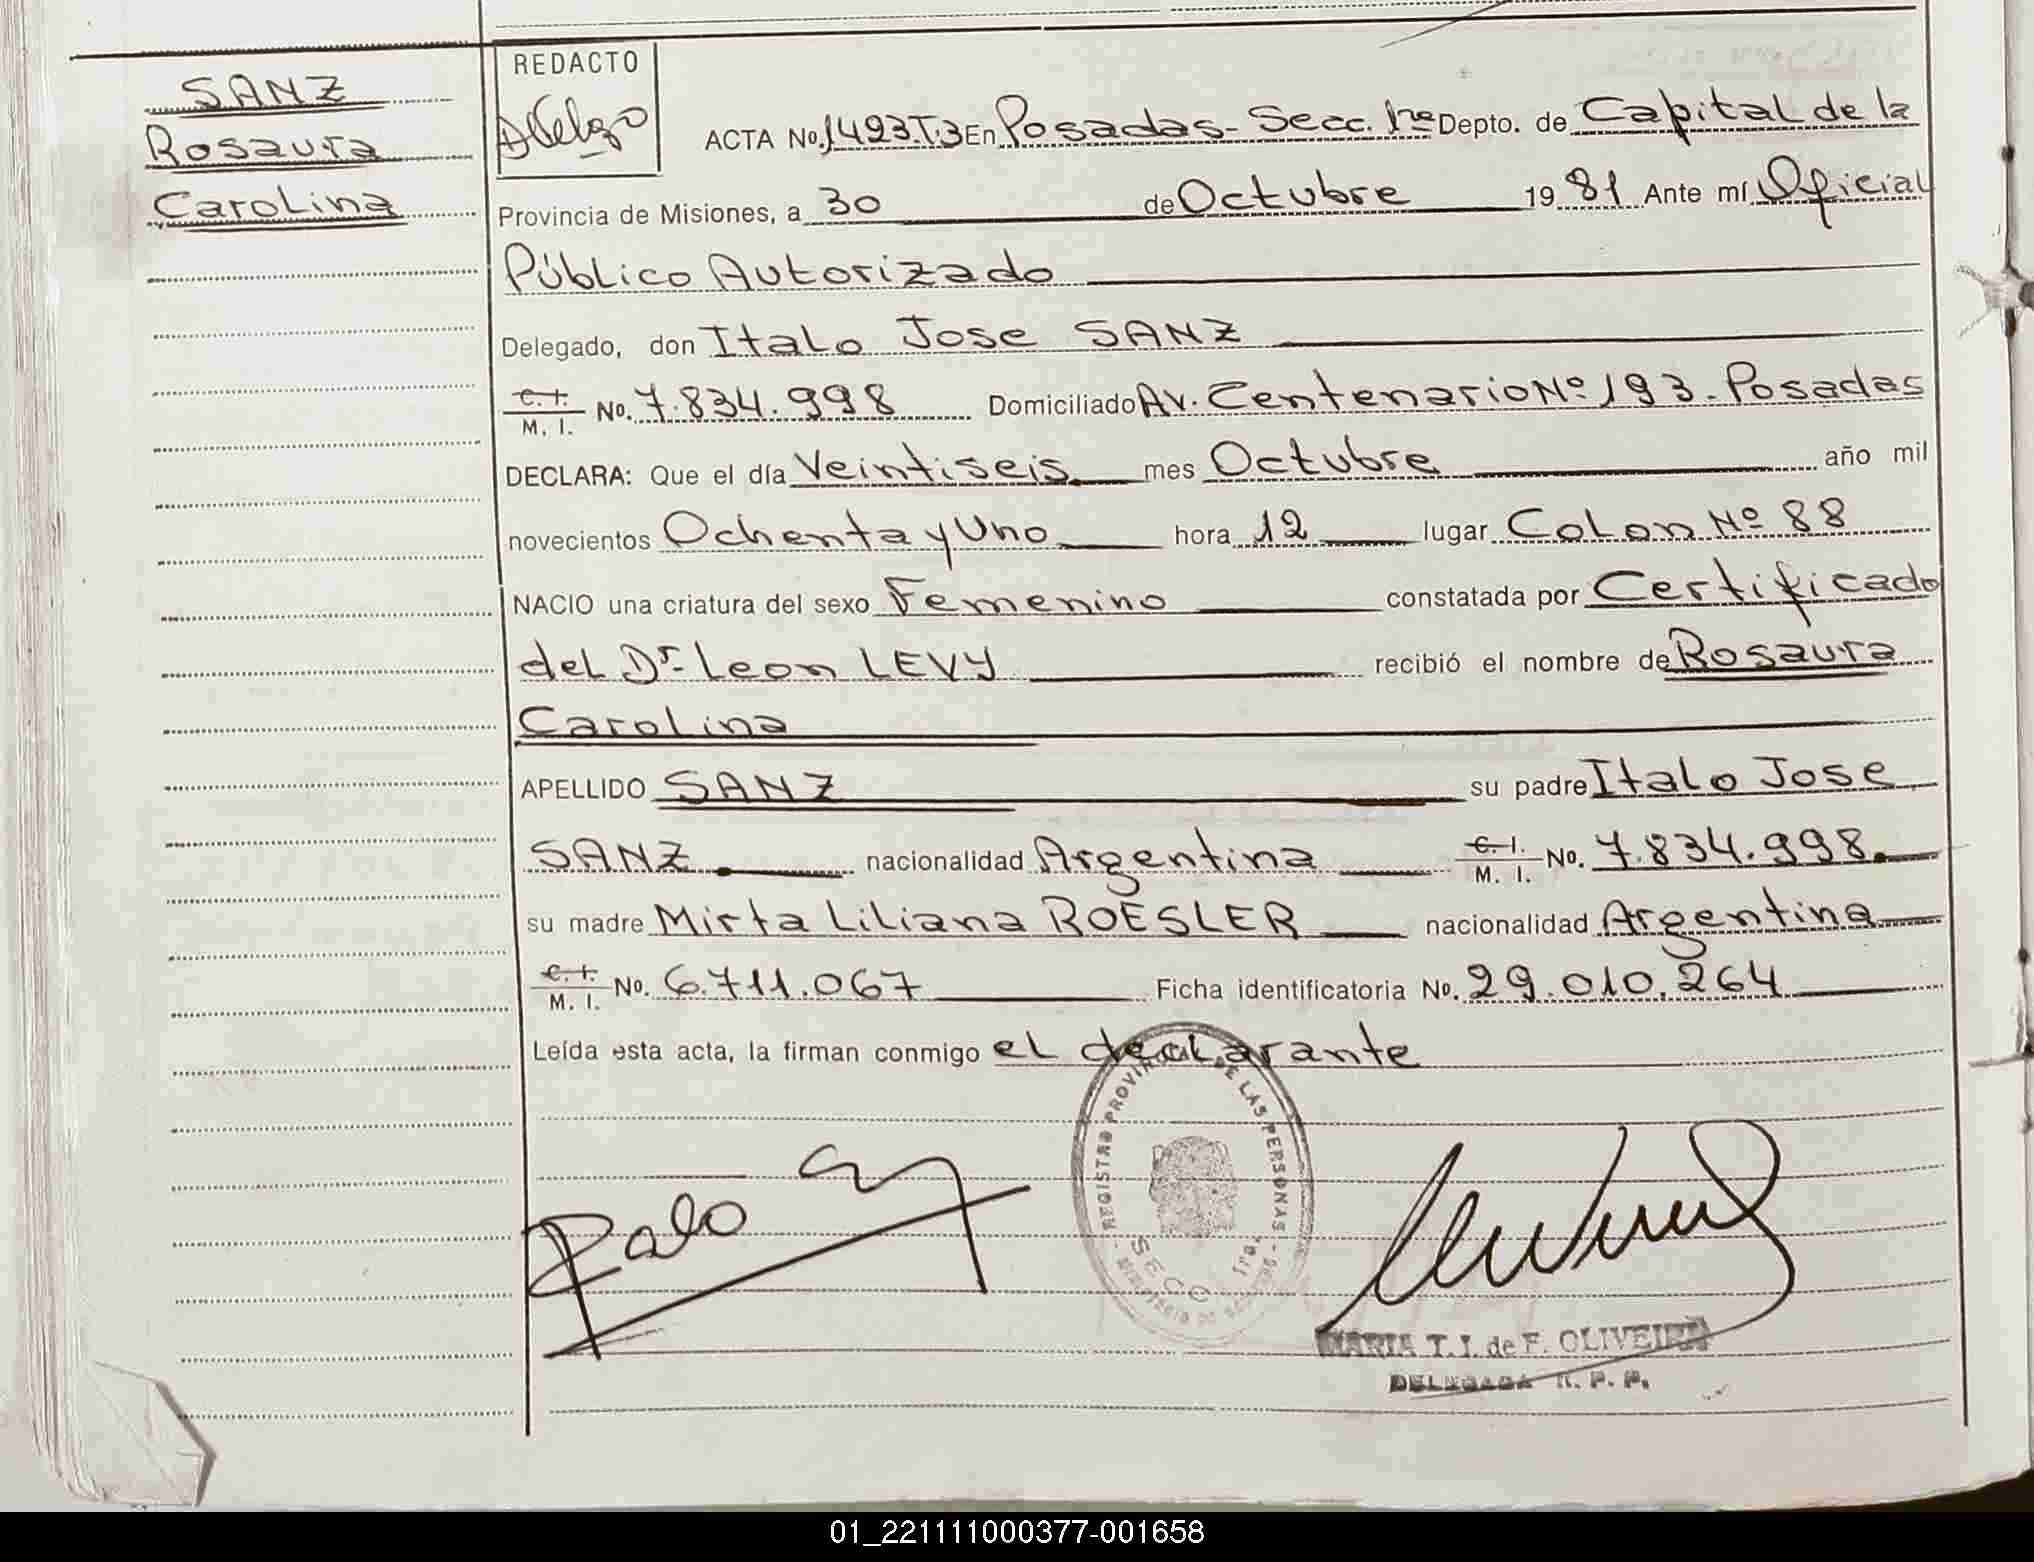 SANZ
Rosaura
Carolina
REDACTO
ACTA No. 1423.T.3 En Posadas - Secc. 1ra Depto. de Capital de la
Provincia de Misiones, a 30 de Octubre 1981 Ante mí Oficial
Público Autorizado
Delegado, don Italo Jose SANZ
C. I. M. I. No. 7.834.998 Domiciliado Av. Centenario Nº 193 - Posadas
DECLARA: Que el día Veintiseis mes Octubre año mil
novecientos Ochenta y Uno hora 12 lugar Colon Nº 88
NACIO una criatura del sexo Femenino constatada por Certificado
del Dr. Leon LEVY recibió el nombre de Rosaura
Carolina
APELLIDO SANZ su padre Italo Jose
SANZ. nacionalidad Argentina C. I. M. I. No. 7.834.998.
su madre Mirta Liliana ROESLER nacionalidad Argentina
C. I. M. I. No. 6.711.067 Ficha identificatoria No. 29.010.264
Leída esta acta, la firman conmigo el declarante
REGISTRO PROVINCIAL DE LAS PERSONAS
SECC. 1ra.
MARIA T. I. de F. OLIVEIRA
DELEGADA R. P. P.
01_221111000377-001658